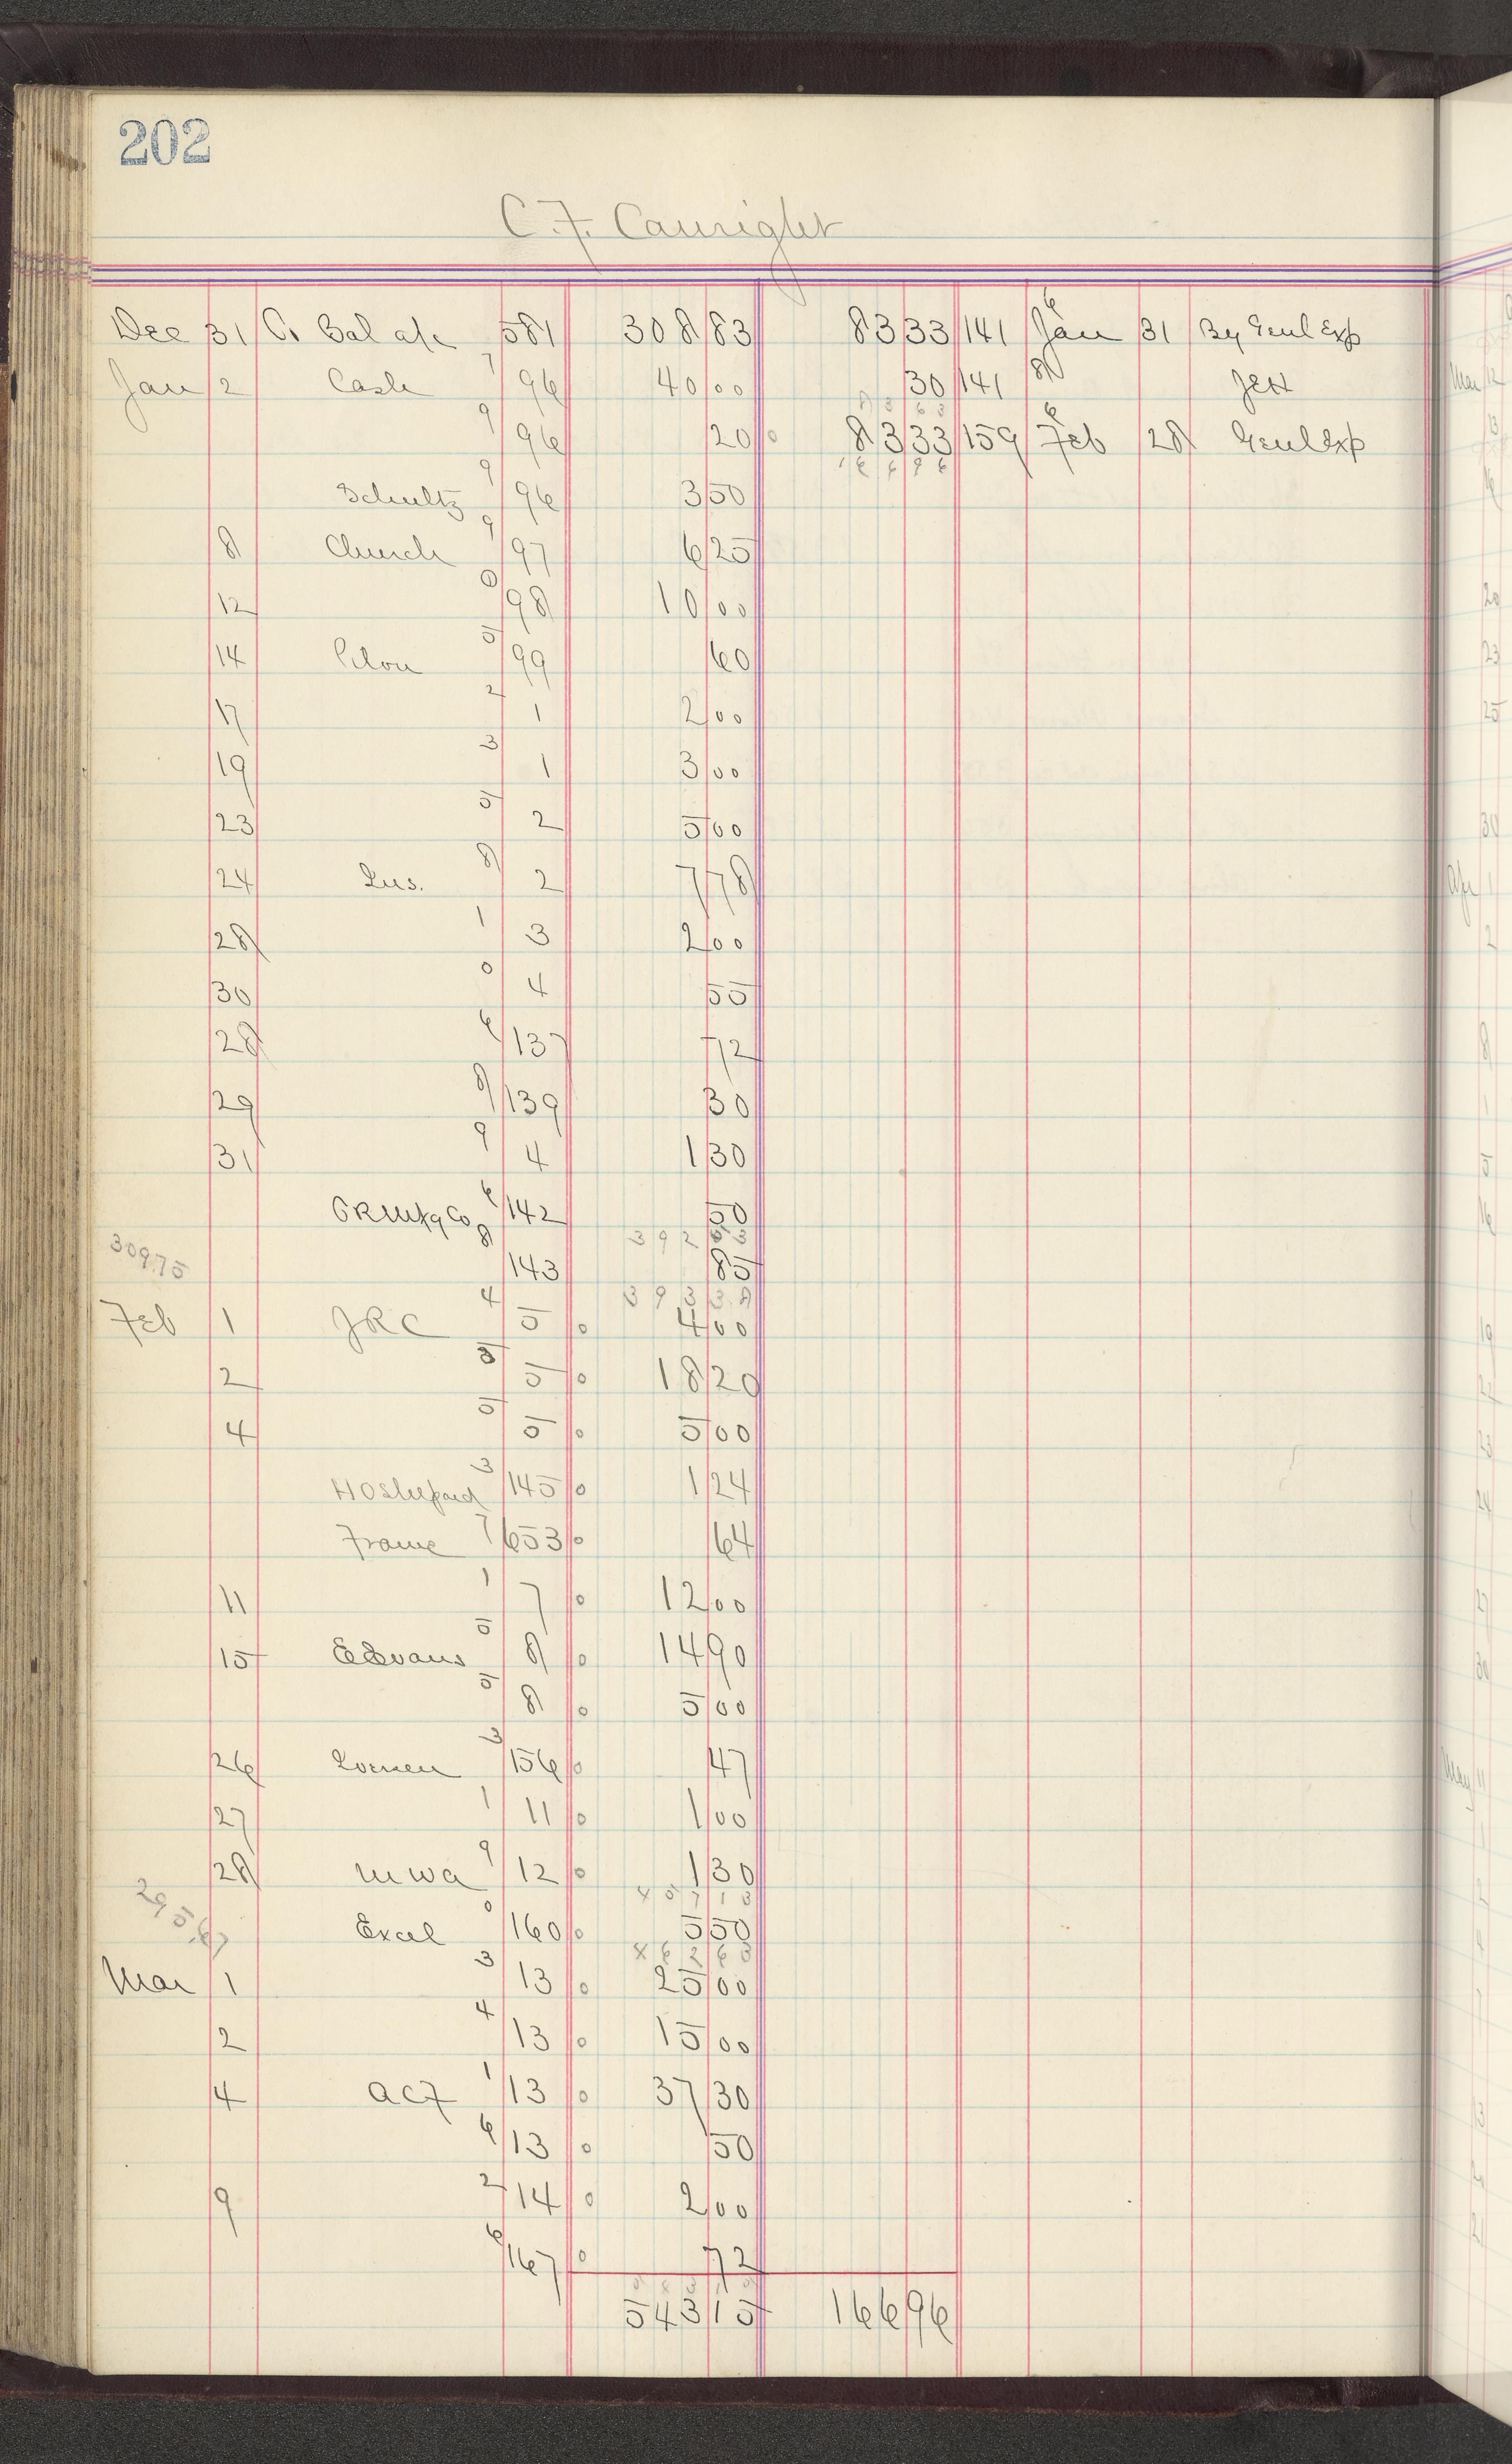 202
C. F. Cauright
Dec 31 Bal a/c 581 308 83 83 33 141 6 Jan 31 By Genl Exp
Jan 2 Cash 7 96 40 00 30 141 8 JEH
9 96 20 0 83 63
83 33 159 6 Feb 28 Genl Exp
166 96
Schultz 9 96 3 50
8 Church 9 97 6 25
12 0 98 10 00
14 Pilon 5 99 60
17 2 1 2 00
19 3 1 3 00
23 5 2 5 00
24 Lus. 8 2 7 78
28 1 3 2 00
30 0 4 55
28 6 137 72
29 8 139 30
31 9 4 1 30
CRMfg Co 6 142 50
392 53
30975 8 143 85
393 38
Feb 1 JRC 4 5 0 4 00
2 3 5 0 18 20
4 5 5 0 5 00
HO Shepard 3 145 0 1 24
Frame 7 653 0 64
11 1 7 0 12 00
15 EEvans 5 8 0 14 90
5 8 0 5 00
26 3 156 0 47
27 1 11 0 1 00
28 MWA 9 12 0 1 30
457 13
29567 Excel 0 160 0 5 50
462 63
Mar 1 3 13 0 25 00
2 4 13 0 15 00
4 ACF 1 13 0 37 30
6 13 0 50
9 2 14 0 2 00
6 167 0 72
543 15 166 96